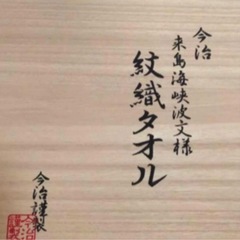 今治
来島海峡波文様
紋織タオル
今治謹製
今治謹製